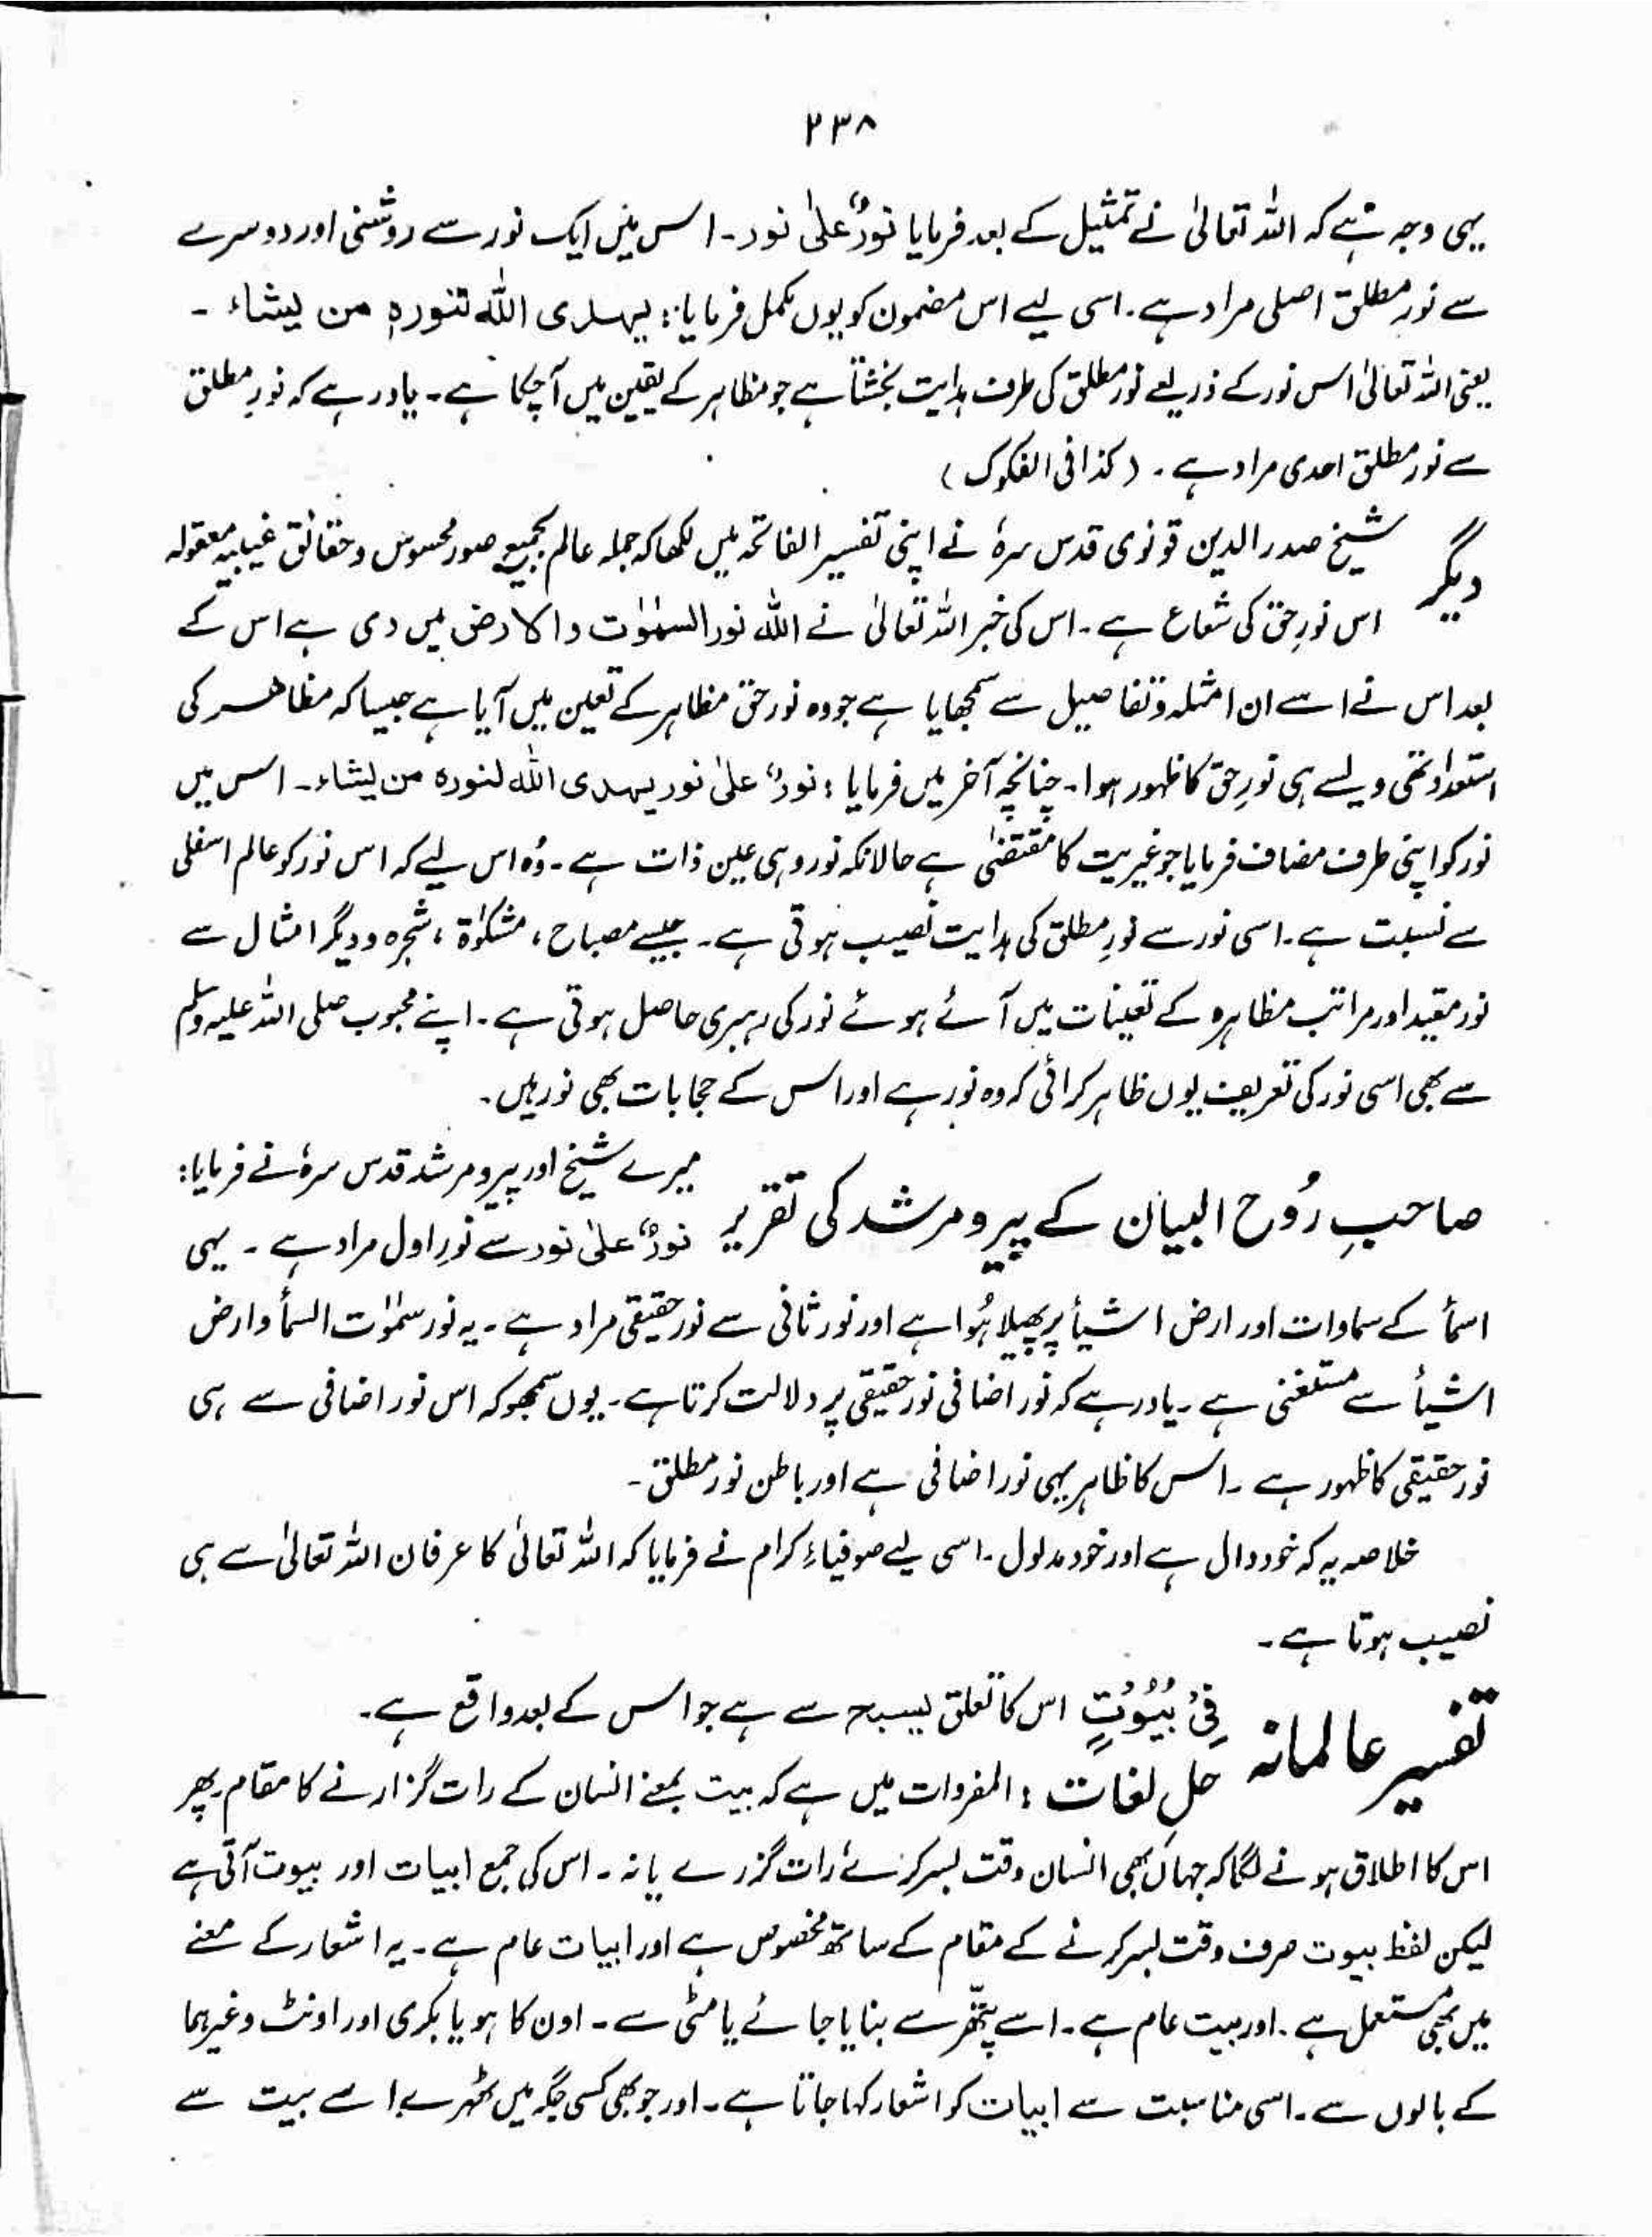 ۲۳۸
یہی وجہ ہے کہ اللہ تعالیٰ نے تمثیل کے بعد فرمایا نورٌ علیٰ نور۔ اس میں ایک نور سے روشنی اور دوسرے
سے نورِ مطلق اصلی مراد ہے۔ اسی لیے اس مضمون کو یوں مکمل فرمایا: یہدی اللہ لنورہٖ من یشاء ۔
یعنی اللہ تعالیٰ اس نور کے ذریعے نورِ مطلق کی طرف ہدایت بخشتا ہے جو مظاہر کے یقین میں آچکا ہے۔ یاد رہے کہ نورِ مطلق
سے نور مطلق احدی مراد ہے۔ (کذا فی الفکوک)
دیگر شیخ صدر الدین قونوی قدس سرہٗ نے اپنی تفسیر الفاتحہ میں لکھا کہ جملہ عالم بجمیع صور محسوس و حقائق غیبیہ معقولہ
اس نورِ حق کی شعاع ہے۔ اس کی خبر اللہ تعالیٰ نے اللہ نور السمٰوٰت والارض میں دی ہے اس کے
بعد اس نے اسے ان امثلہ و تفاصیل سے سمجھایا ہے جو وہ نور حق مظاہر کے تعین میں آیا ہے جیسا کہ مظاہر کی
استعداد تھی ویسے ہی نورِ حق کا ظہور ہوا۔ چنانچہ آخر میں فرمایا: نورٌ علیٰ نور یہدی اللہ لنورہ من یشاء۔ اس میں
نور کو اپنی طرف مضاف فرمایا جو غیریت کا مقتضیٰ ہے حالانکہ نور وہی عین ذات ہے۔ وُہ اس لیے کہ اس نور کو عالم اسفلی
سے نسبت ہے۔ اسی نور سے نورِ مطلق کی ہدایت نصیب ہوتی ہے۔ جیسے مصباح، مشکوٰۃ، شجرہ و دیگر امثال سے
نور مقید اور مراتب مظاہرہ کے تعینات میں آئے ہوئے نور کی رہبری حاصل ہوتی ہے۔ اپنے محبوب صلی اللہ علیہ وسلم
سے بھی اسی نور کی تعریف یوں ظاہر کرائی کہ وہ نور ہے اور اس کے حجابات بھی نور ہیں۔
صاحبِ رُوح البیان کے پیر و مرشد کی تقریر میرے شیخ اور پیر و مرشد قدس سرہٗ نے فرمایا:
نورٌ علیٰ نور سے نورِ اول مراد ہے۔ یہی
اسمأ کے سماوات اور ارض اشیأ پر پھیلا ہُوا ہے اور نور ثانی سے نور حقیقی مراد ہے۔ یہ نور سمٰوٰت السمأ و ارض
اشیأ سے مستغنی ہے۔ یاد رہے کہ نور اضافی نور حقیقی پر دلالت کرتا ہے۔ یوں سمجھو کہ اس نور اضافی سے ہی
نور حقیقی کا ظہور ہے۔ اس کا ظاہر یہی نور اضافی ہے اور باطن نور مطلق۔
خلاصہ یہ کہ خود دال ہے اور خود مدلول۔ اسی لیے صوفیاءِ کرام نے فرمایا کہ اللہ تعالیٰ کا عرفان اللہ تعالیٰ سے ہی
نصیب ہوتا ہے۔
تفسیر عالمانہ فِیْ بُیُوْتٍ اس کا تعلق یسبح سے ہے جو اس کے بعد واقع ہے۔
حلِ لغات : المفردات میں ہے کہ بیت بمعنے انسان کے رات گزارنے کا مقام۔ پھر
اس کا اطلاق ہونے لگا کہ جہاں بھی انسان وقت بسر کرے رات گزرے یا نہ۔ اس کی جمع ابیات اور بیوت آتی ہے
لیکن لفظ بیوت صرف وقت بسر کرنے کے مقام کے ساتھ مخصوص ہے اور ابیات عام ہے۔ یہ اشعار کے معنے
میں بھی مستعمل ہے۔ اور بیت عام ہے۔ اسے پتھر سے بنایا جائے یا مٹی سے۔ اون کا ہو یا بکری اور اونٹ وغیرہما
کے بالوں سے۔ اسی مناسبت سے ابیات کو اشعار کہا جاتا ہے۔ اور جو بھی کسی جگہ میں ٹھہرے اسے بیت سے